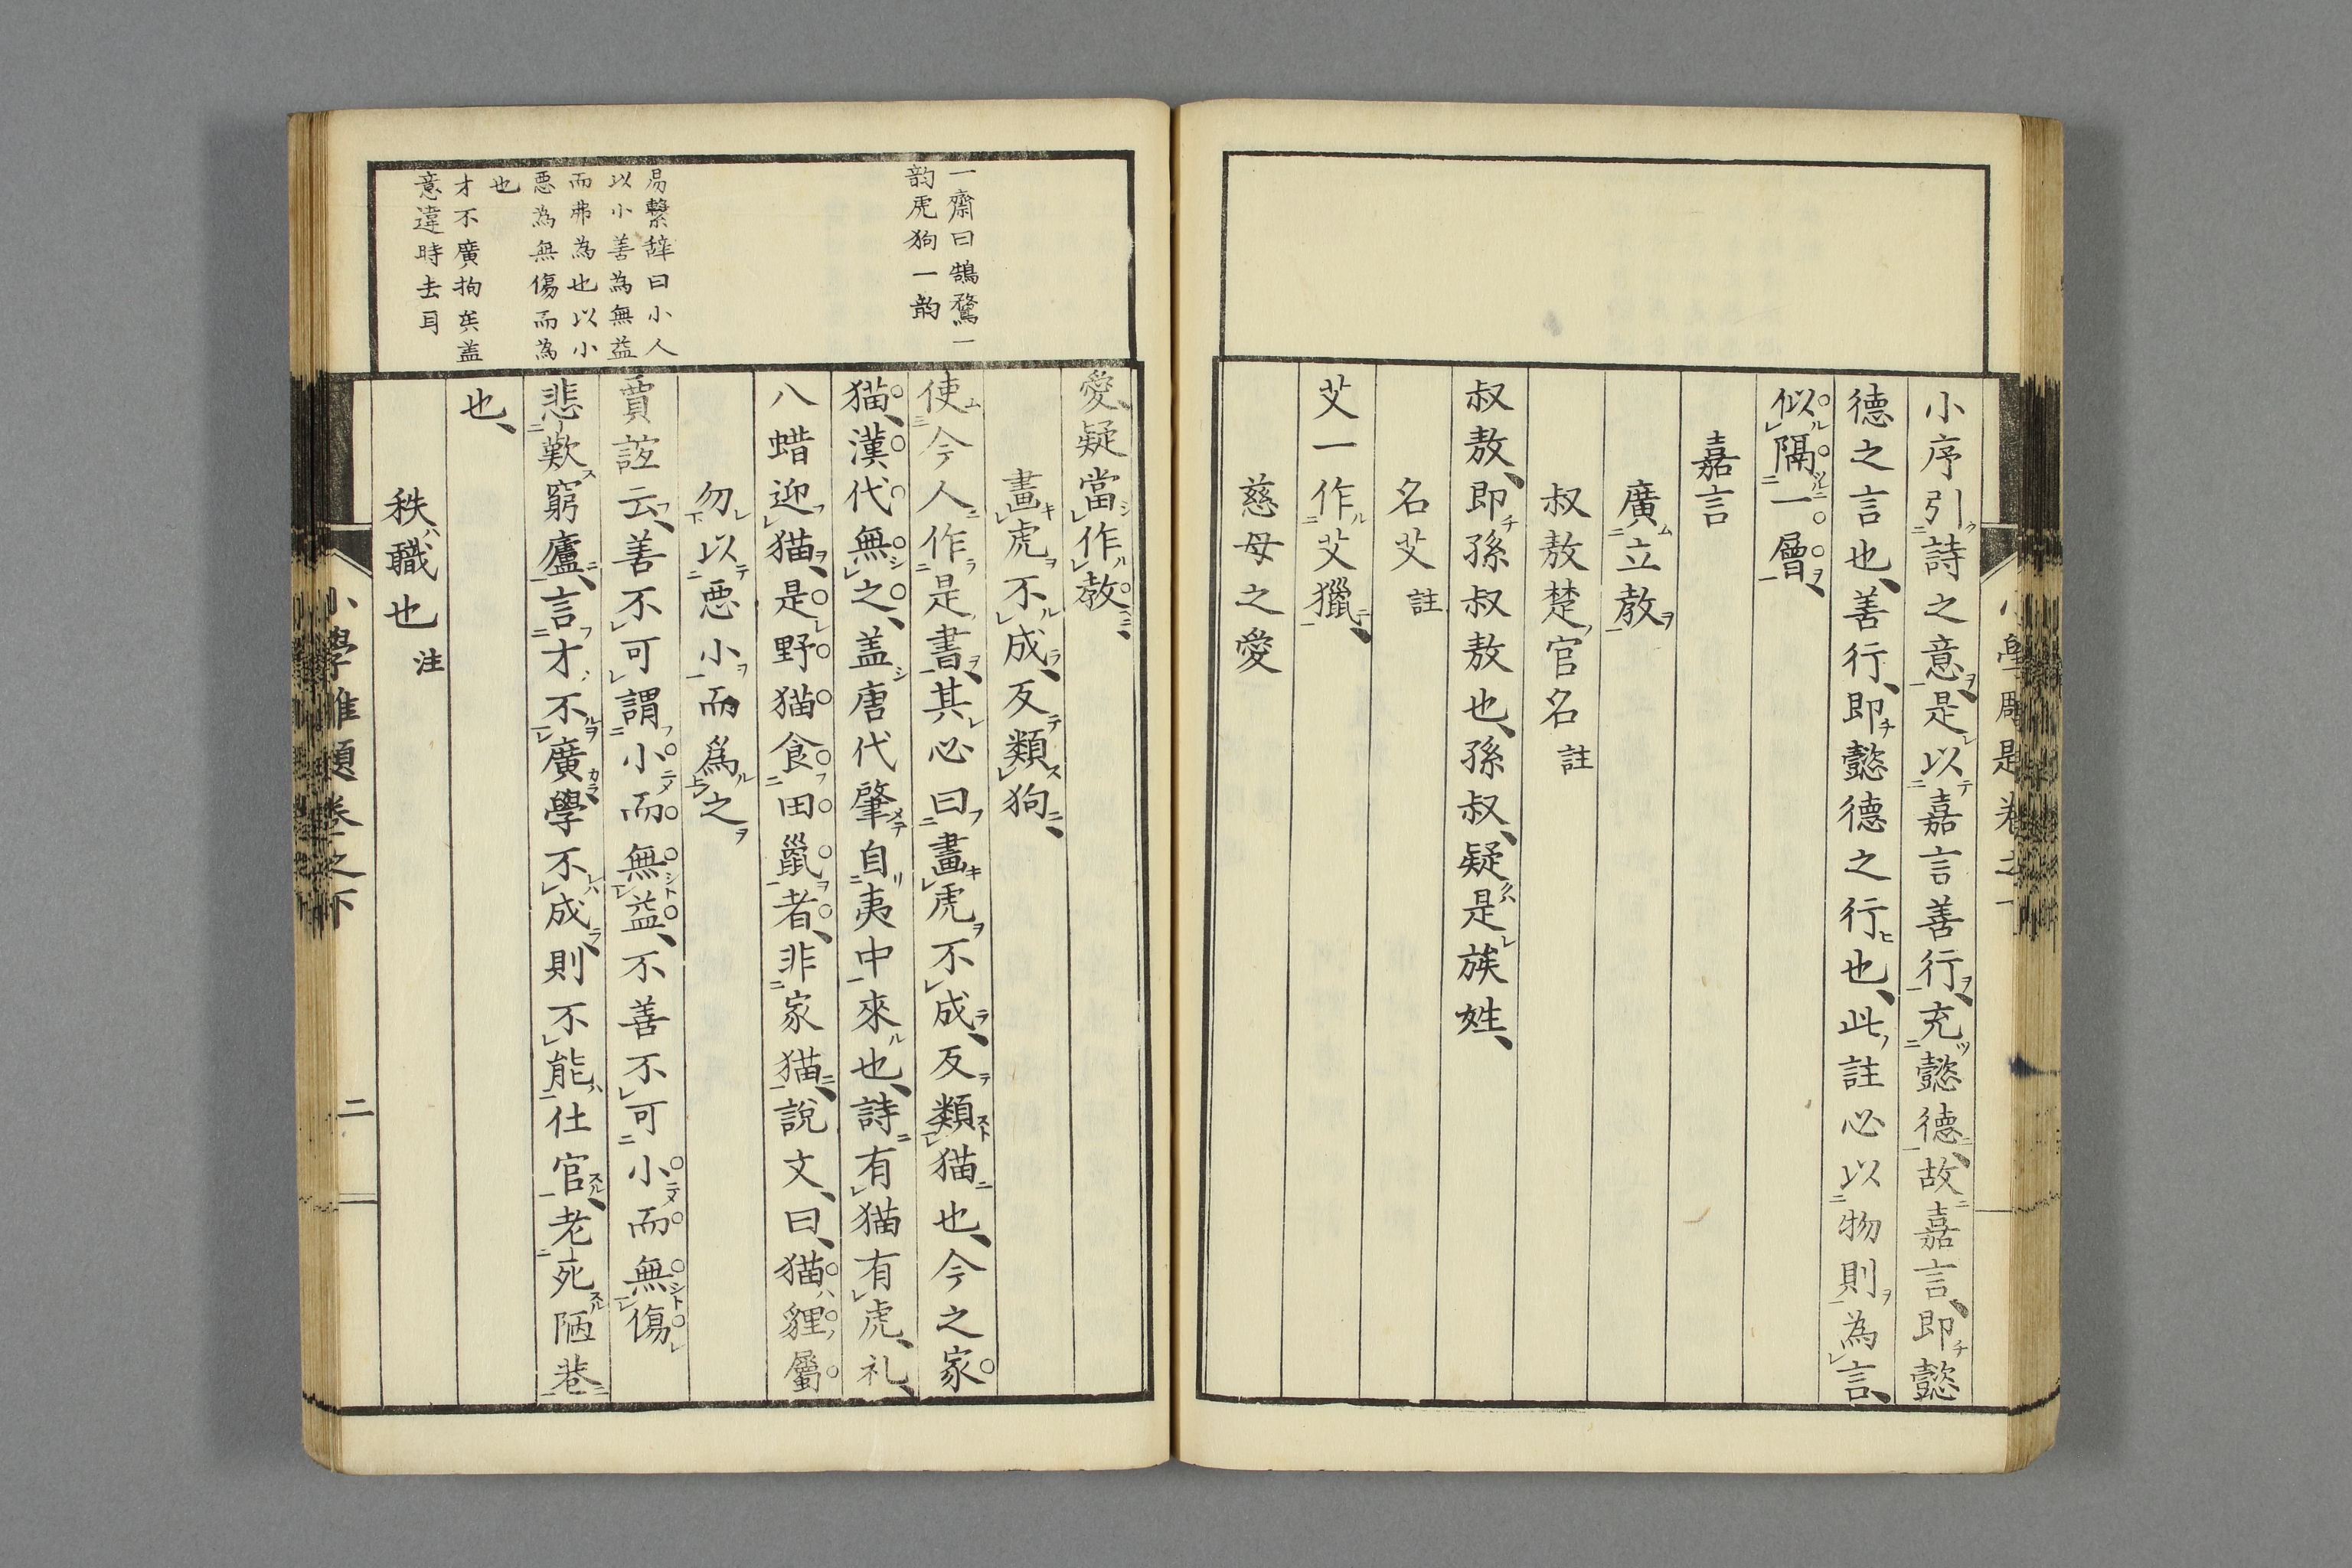 小序引詩之意、是以嘉言善行、充懿德、故嘉言、即懿
德之言也、善行、即懿德之行也、此註必以物則為言、
似隔一層、
嘉言
廣立教
叔敖楚官名 註
叔敖、即孫叔敖也、孫叔、疑是族姓、
名艾 註
艾一作艾獵、
慈母之愛
一齋曰鵠鶩一
韵虎狗一韵
易繫辞曰小人
以小善為無益
而弗為也以小
悪為無傷而為
也
才不廣拘矣盖
意違時去耳
愛、疑當作教、
畫虎不成、反類狗、
使今人作是書、其必曰畫虎不成、反類猫也、今之家
猫、漢代無之、盖唐代肇自夷中來也、詩有猫有虎、礼、
八蜡迎猫、是野猫食田鼠者、非家猫、說文、曰、猫貍屬
勿以悪小而爲之
賈誼云、善不可謂小而無益、不善不可小而無傷
悲歎窮廬、言才不廣學不成、則不能仕官、老死陋巷
也、
秩職也 注
二